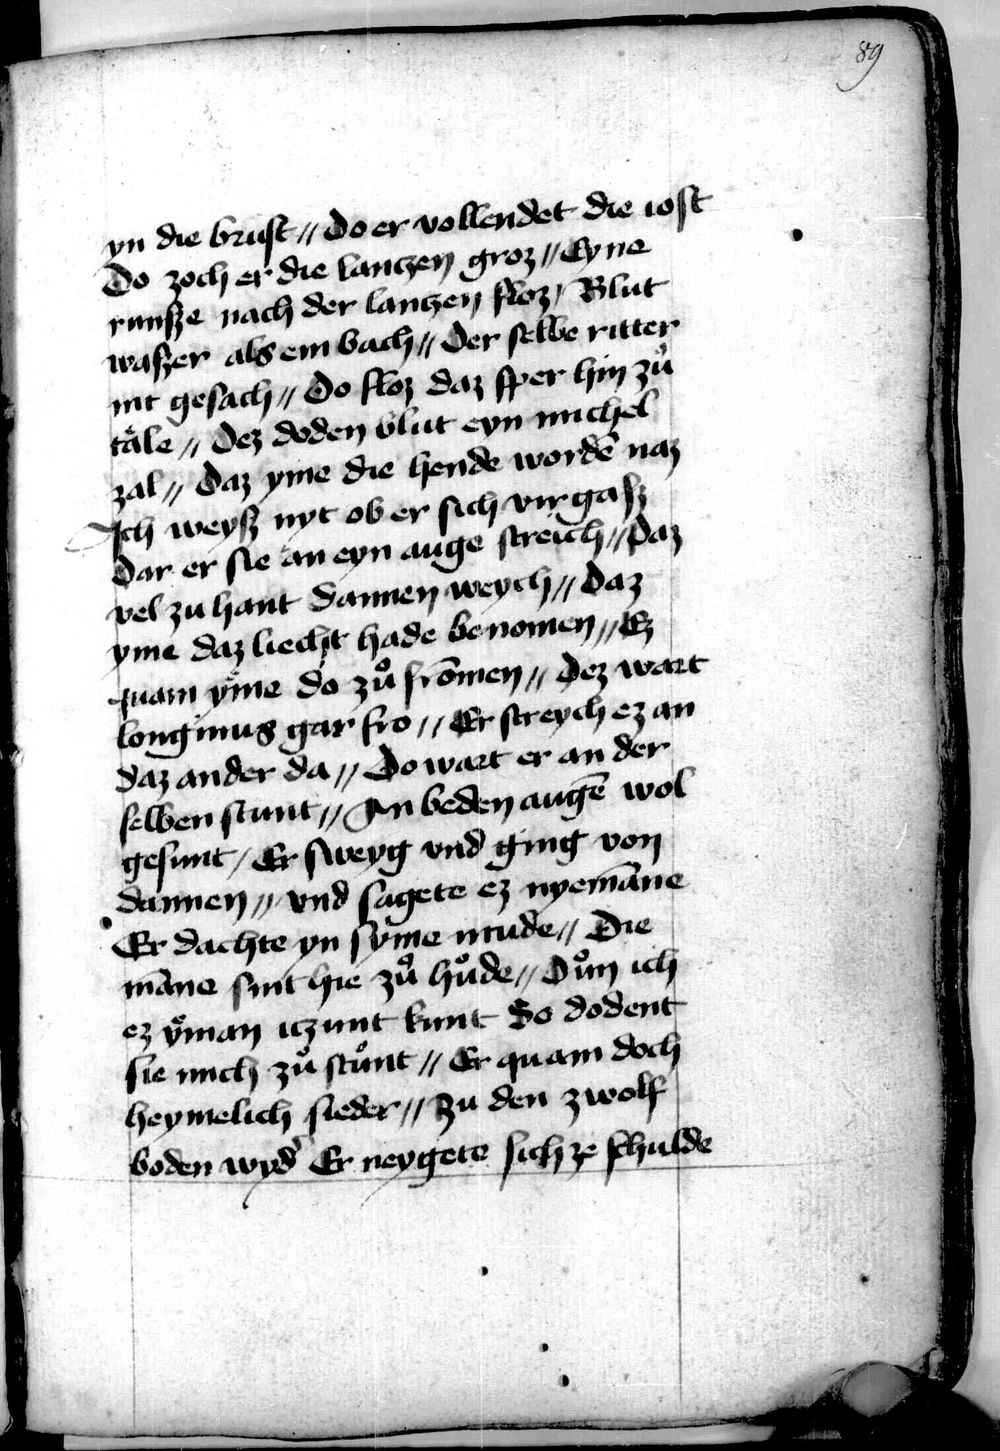 89
yn die brust // Do er vollendet die iost
Do zoch er die lantzen groz // Eyne
runsze nach der lantzen floz / Blut
waszer als ein bach // Der selbe ritter
nit gesach // Do floz daz sper hin zuͦ
tale // Dez doden blut eyn michel
zal // Daz yme die hende wordē naz
Ich weysz nyt ob er sich virgasz
Dar er sie an eyn auge streich // Daz
vel zu hant dannen weych // Daz
yme daz liecht hade benomen // Ez
quam yme do zuͦ frōmen // Dez wart
longinus gar fro // Er streych ez an
daz ander da // Do wart er an der
selben stunt // An beden augē wol
gesunt / Er sweyg vnd ging von
dannen // vnd sagete ez nyemāne
Er dachte yn syme mude // Die
māne sint hie zuͦ huͦde // Duͦn ich
ez yman itzunt kunt So dodent
sie mich zuͦ stuͦnt // Er quam doch
heymelich sieder // Zu den zwolf
boden wyd' Er neygete sich ze schulde